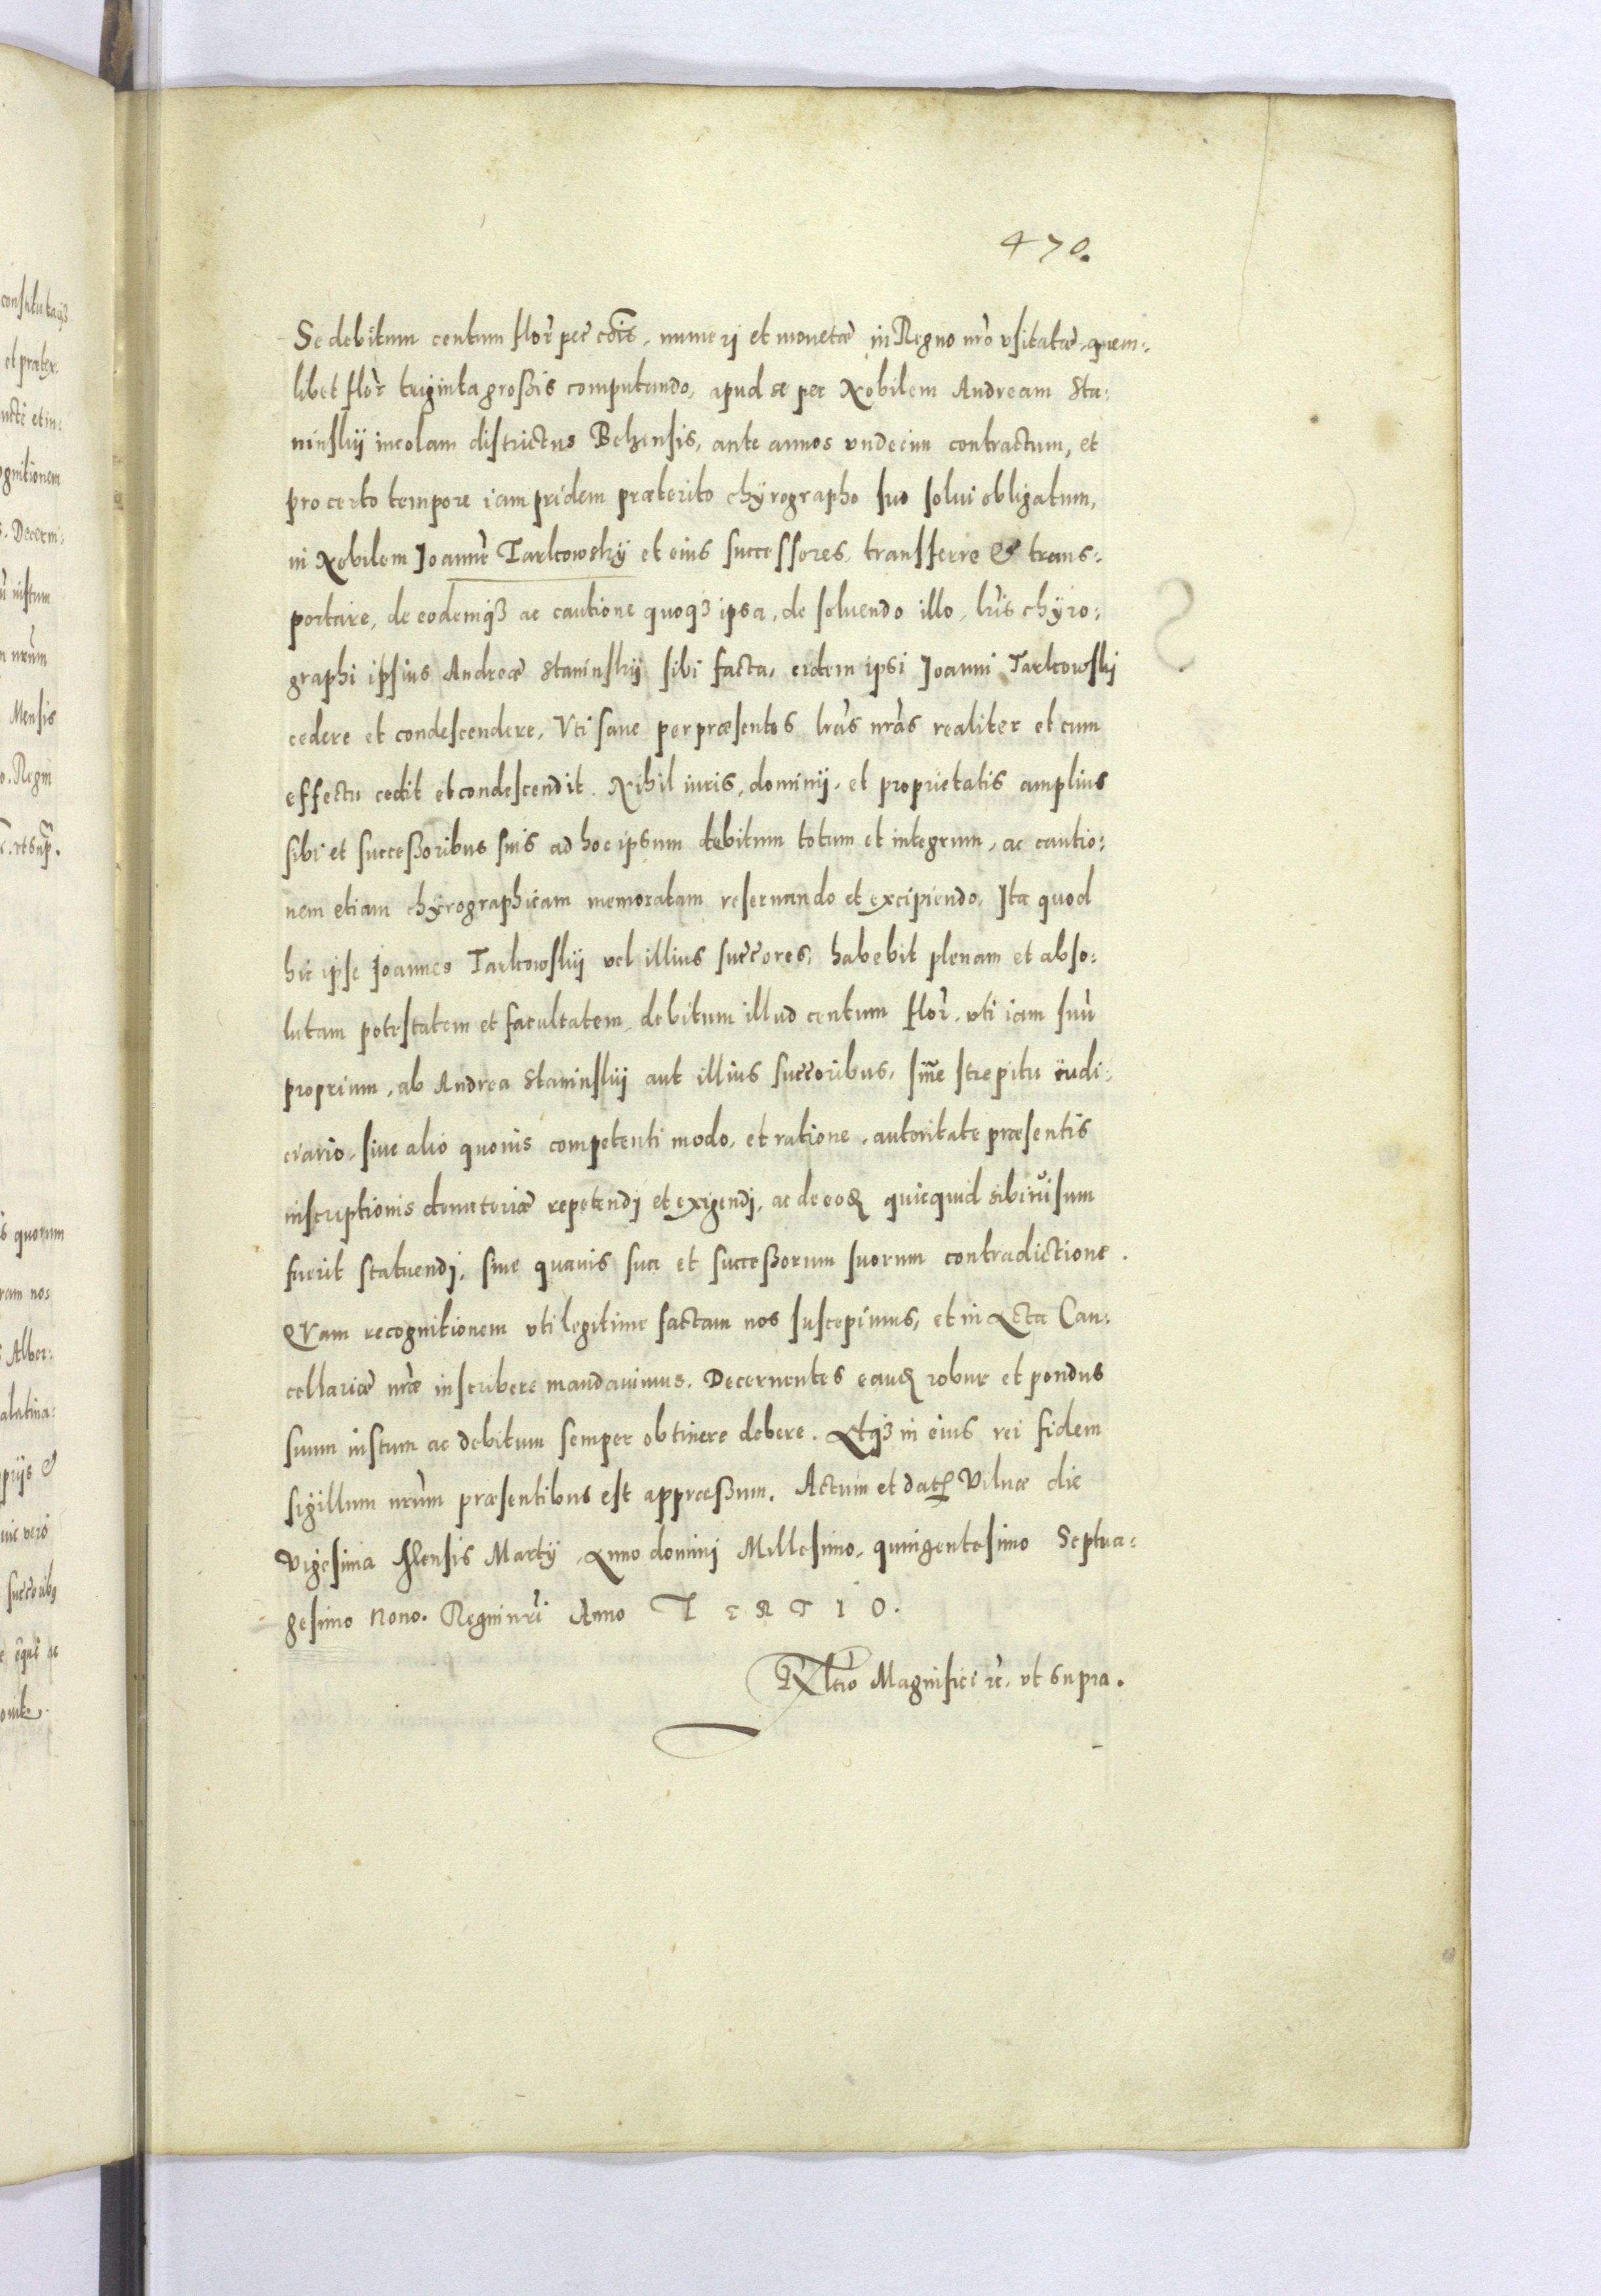 470.
Se debitum centum flor̄ pec̄ cōis, numerj et monetæ in Regno nr̄o vsitatæ, quem-
libet flor̄ triginta großis computando, apud se per Nobilem Andream Sta-
ninskij incolam districtus Belzensis, ante annos vndecim contractum, et
pro certo tempore iampridem præterito chyrographo suo solui obligatum,
in Nobilem Joannē Tarkowskÿ et eius successores, transferre & trans-
portare, de eodemqꝫ ac cautione quoqꝫ ipsa, de soluendo illo, lr̄is chÿro-
graphi ipsius Andreæ Staninskij sibi facta, eidem ipsi Joanni Tarkowskj
cedere et condescendere, Vti sane per præsentes lr̄as nr̄as realiter et cum
effectu cedit et condescendit. Nihil iuris, dominij, et proprietatis amplius
sibi et succeßoribus suis ad hoc ipsum debitum totum et integrum, ac cautio-
nem etiam chÿrographicam memoratam reseruando et excipiendo, Ita quod
hic ipse Joannes Tarkowskij vel illius succ̄ores, habebit plenam et abso-
lutam potestatem et facultatem, debitum illud centum flor̄. vti iam suū
proprium, ab Andrea Staninskij aut illius succ̄oribus, sine strepitu iudi-
ciario, siue alio quouis competenti modo, et ratione, autoritate præsentis
inscriptionis repetendj et exigendj, ac de eoꝶ quicquid sibi visum
fuerit statuendj, sine quauis sua et succeßorum suorum contradictione.
QVam recognitionem vti legitime factam nos suscepimus, et in Acta Can-
cellariæ nr̄æ inscribere mandauimus. Decernentes eanꝶ robur et pondus
suum iustum ac debitum semper obtinere debere. Atqꝫ in eius rei fidem
sigillum nr̄um præsentibus est appræßum. Actum et datꝭ Vilnæ die
Vigesima Mensis Martÿ, Anno dominj Millesimo, quingentesimo Septua-
gesimo Nono. Regni nr̄i Anno TERTIO.
Rltio Magnifici ꝛc̄. vt supra.